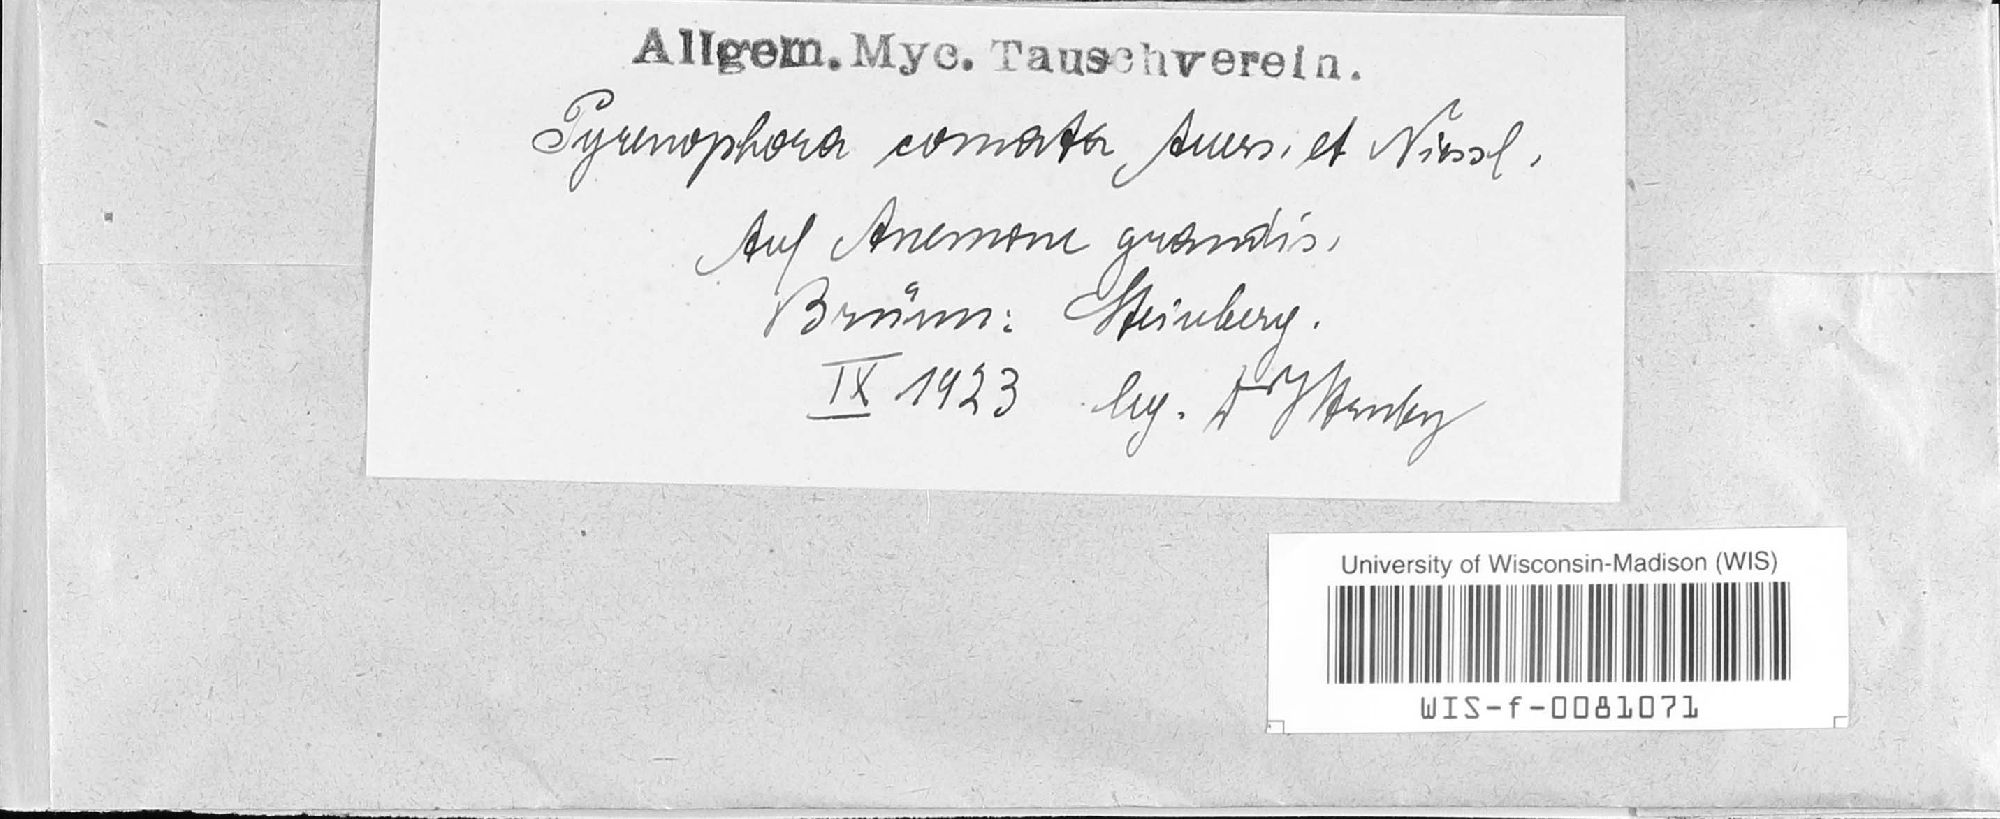 Allgem. Myc. Tauschverein.
Pyrenophora comata Auersw. et Niessl.
Auf Anemone grandis.
Brünn: Steinberg.
IX 1923 leg. Dr J Hruby
University of Wisconsin-Madison (WIS)
WIS-f-0081071